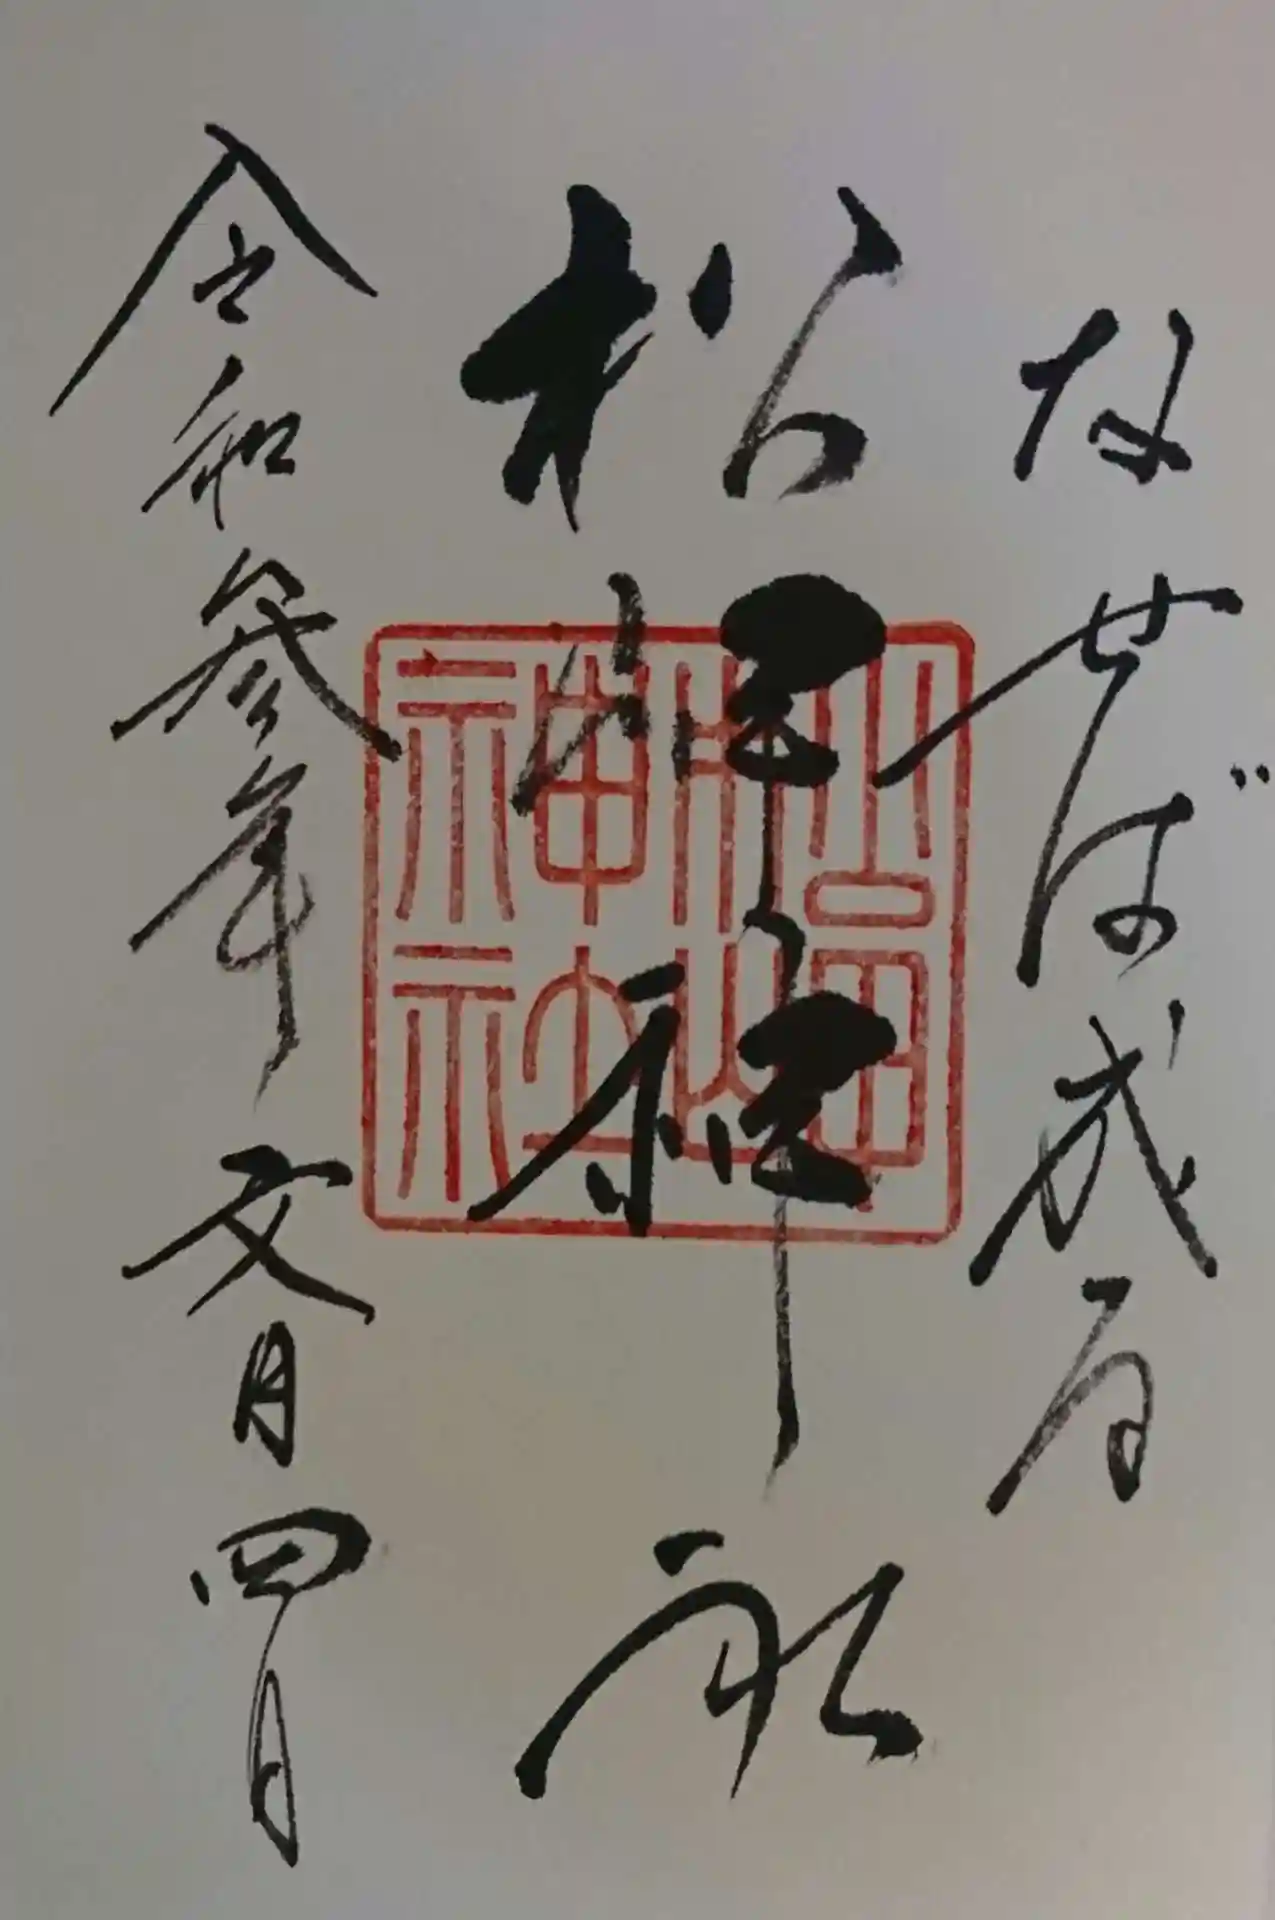 なせば成る
松岬神社
令和参年文月四日
松岬神社